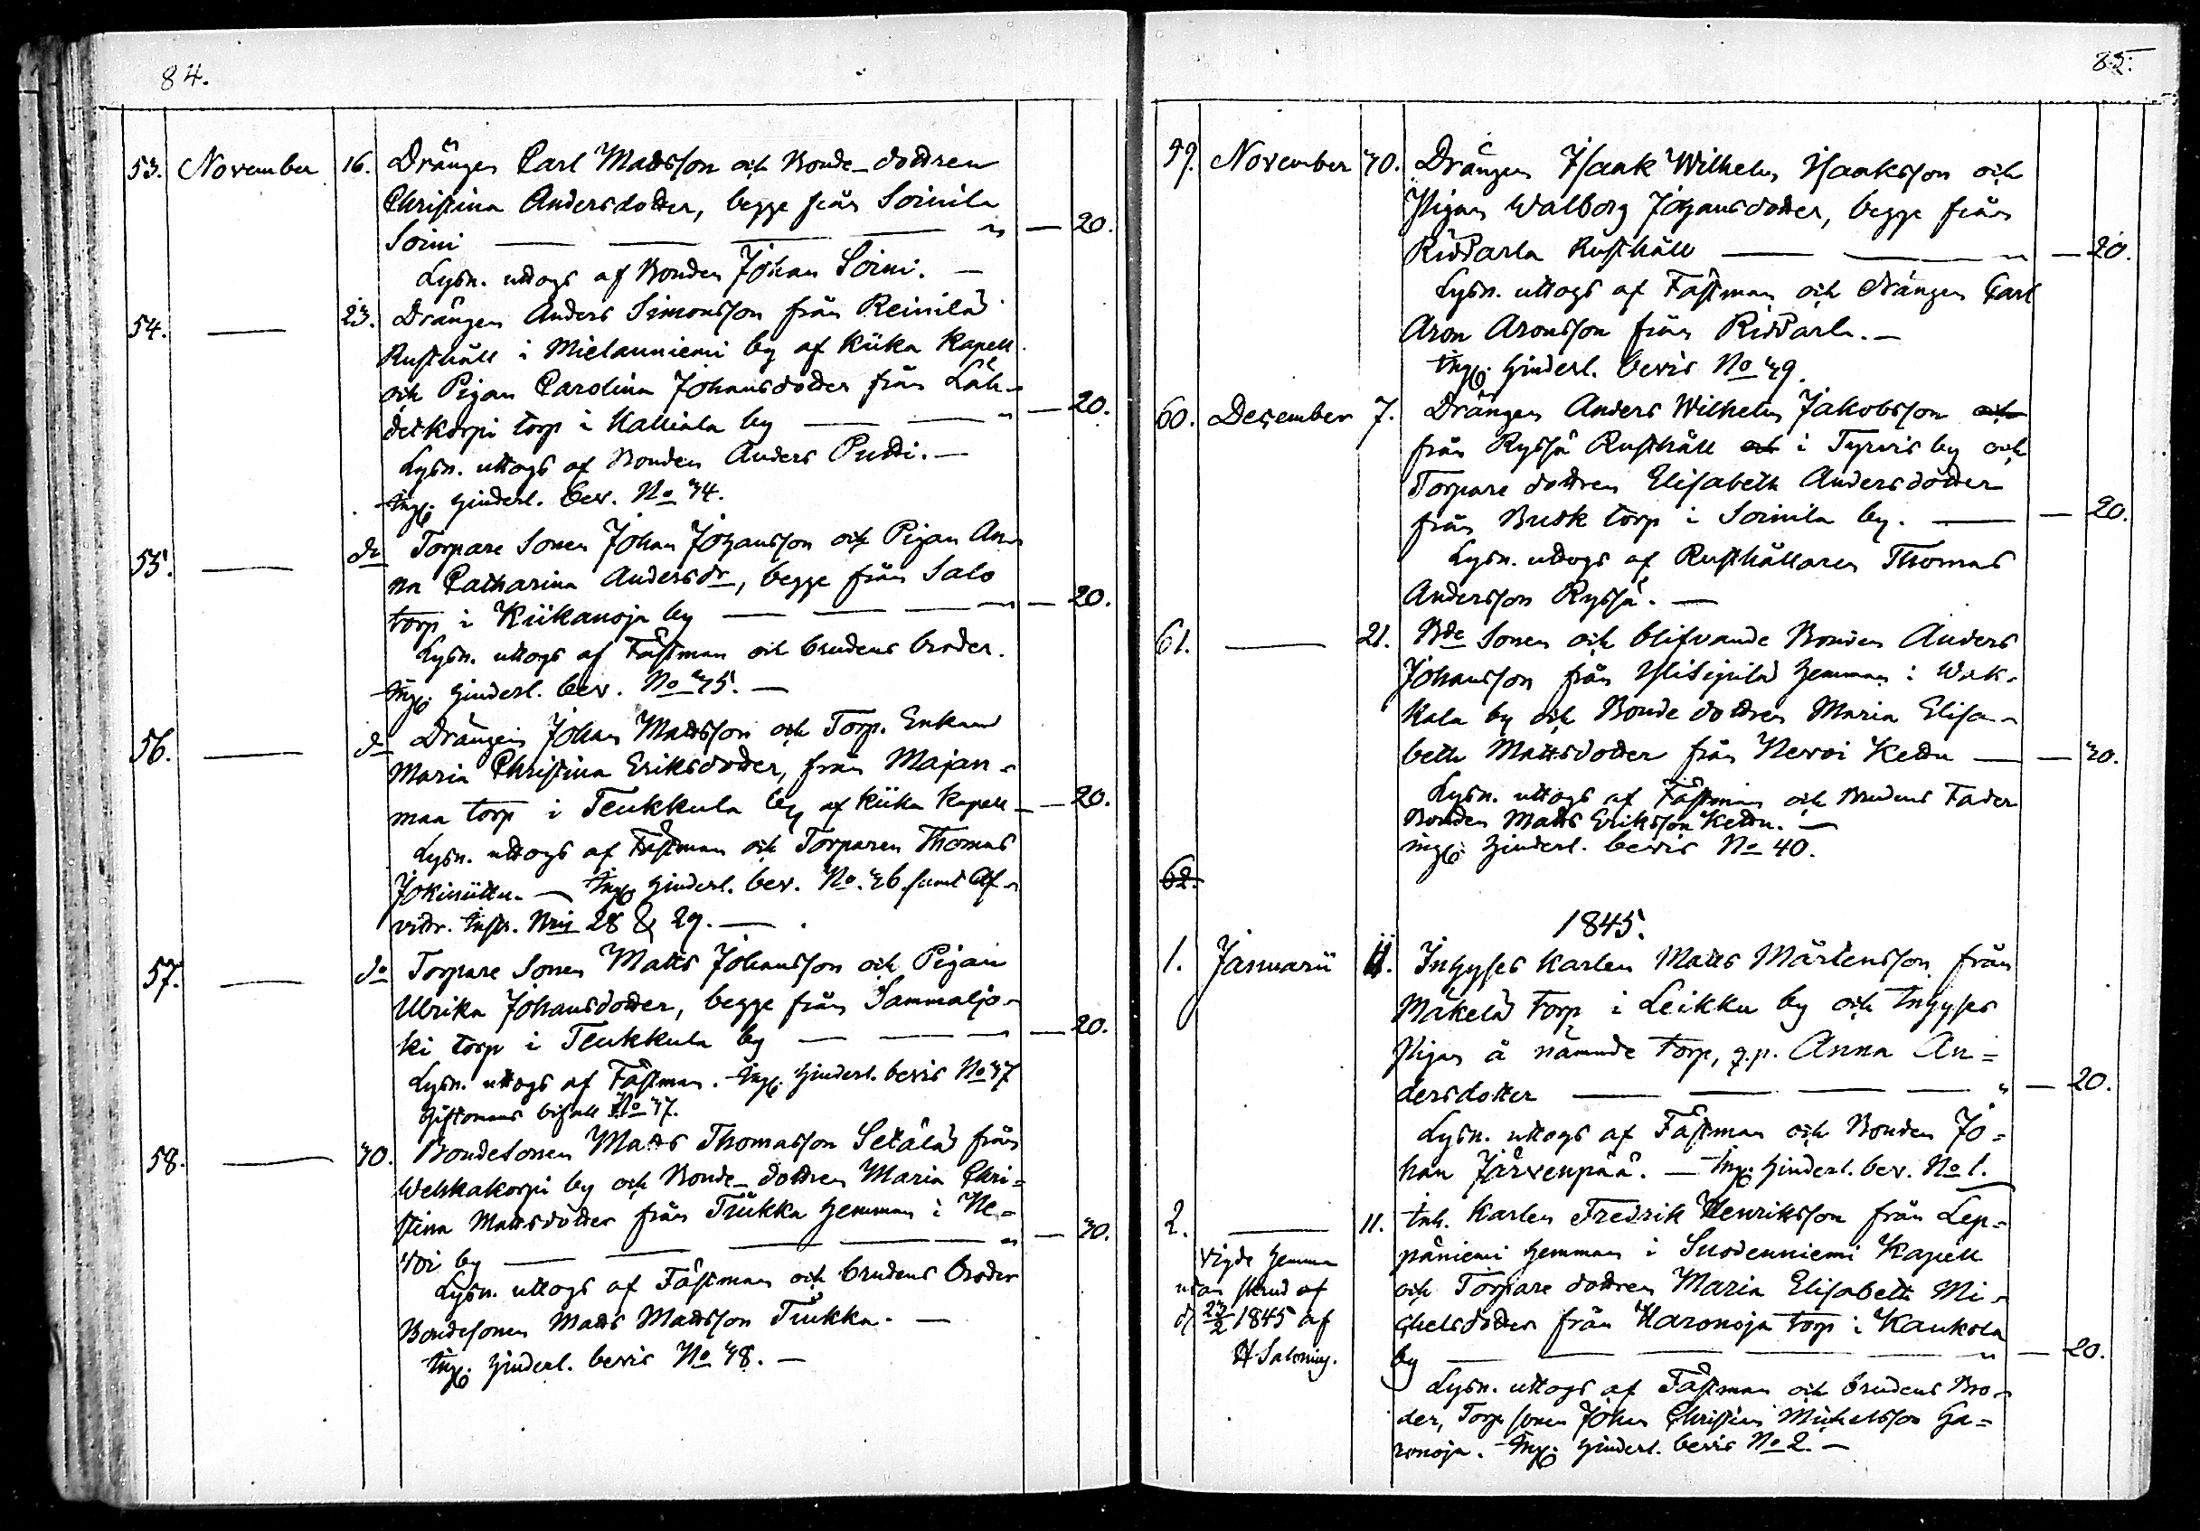 84.
53. November 16. Drängen Carl Mattsson och Bonde-dottren
Christina Andersdotter, begge från Soinila
Soini — — — — " — 20.
Lysn. uttogs af Bonden Johan Soini. —
54. — 23. Drängen Anders Simonsson från Reinilä
Rusthåll i Mielauniemi by af Kiika Kapell
och Pigan Carolina Johansdotter från Läh-
dekorpi torp i Kalliala by — — " — 20.
Lysn. uttogs af Bonden Anders Putti. —
Ing. hinderl. bev. No 34.
55. — do Torpare Sonen Johan Johansson och Pigan An-
na Catharina Andersdr, begge från Salo
torp i Kiikanoja by — — — 20.
Lysn. uttogs af Fästman och brudens broder.
Ing. hinderl. bev. No 35. —
56. — do Drängen Johan Mattsson och Torp. Enkan
Maria Christina Eriksdotter, från Majan-
maa torp i Teukkula by af Kiika Kapell — 20.
Lysn. uttogs af Fästman och Torparen Thomas
Jokiniittu. — Ing. hinderl. bev. No. 36. samt Af-
vittr. Instr. Nris 28 & 29. —
57. — do Torpare Sonen Matts Johansson och Pigan
Ulrika Johansdotter, begge från Sammaljo-
ki torp i Teukkula by — — — 20.
Lysn. uttogs af Fästman. Ing. hinderl. bevis No 37
Giftomans bifall No 37.
58. — 30. Bondesonen Matts Thomasson Setälä från
Wehkakorpi by och Bonde-dottren Maria Chri=
stina Mattsdotter från Tiukka hemman i Ne=
voi by — — — — " — 30.
Lysn. uttogs af Fästman och brudens broder
Bondesonen Matts Mattsson Tiukka. —
Ing. hinderl. bevis No 38. —
85.
59. November 30. Drängen Isaak Wilhelm Isaksson och
Pigan Walborg Johansdotter, begge från
Riddarla Rusthåll — — " — 20.
Lysn. uttogs af Fästman och drängen Carl
Aron Aronsson från Riddarla. —
Ing. hinderl. bevis No 39.
60. December 7. Drängen Anders Wilhelm Jakobsson och
från Ryssä Rusthåll och i Tyrvis by och
Torpare dottren Elisabeth Andersdotter
från Busk torp i Soinila by. — — 20.
Lysn. uttogs af Rusthållaren Thomas
Andersson Ryssä. —
61. — 21. Bde Sonen och blifvande Bonden Anders
Johansson från hemman i Wak-
kala by och Bonde dottren Maria Elisa-
beth Mattsdotter från Nevoi Kettu — — 30.
Lysn. uttogs af Fästman och Brudens Fader
Bonden Matts Eriksson Kettu. —
Ing. hinderl. bevis No 40.
62.
1845.
1. Januarii 11. Inhyses Karlen Matts Mårtensson från
Mäkelä torp i Leikku by och Inhyses
Pigan å nämnde torp, q.p. Anna An=
dersdotter — — — — " — 20.
Lysn. uttogs af Fästman och Bonden Jo=
han Järvenpää. — Ing. hinderl. bev. No 1.
2. — 11. Inh. Karlen Fredrik Henriksson från Lep=
päniemi hemman i Suodenniemi Kapell
och Torpare dottren Maria Elisabeth Mi-
chelsdotter från Haronoja torp i Kaukola
by — — — — " — 20.
Vigde hemma
utan skrud af
d 23/2 1845 af
H Saloniu.
Lysn. uttogs af Fästman och brudens Bro-
der, Torp sonen Johan Christian Michelsson Ha=
ronoja. Ing. hinderl. bevis No 2. —